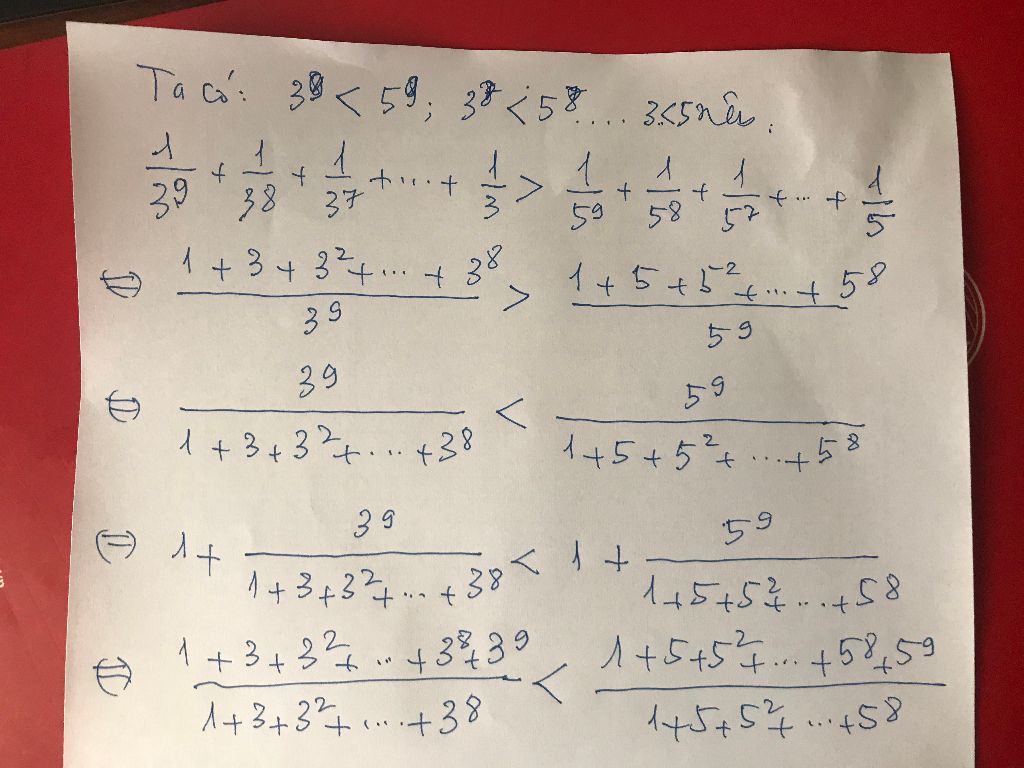 Ta có: 3⁹ < 5⁹; 3⁸ < 5⁸.... 3<5 nên.
1/3⁹ + 1/3⁸ + 1/3⁷ + ... + 1/3 > 1/5⁹ + 1/5⁸ + 1/5⁷ + ... + 1/5
⇔ (1 + 3 + 3² + ... + 3⁸)/3⁹ > (1 + 5 + 5² + ... + 5⁸)/5⁹
⇔ 3⁹/(1 + 3 + 3² + ... + 3⁸) < 5⁹/(1 + 5 + 5² + ... + 5⁸)
⇔ 1 + 3⁹/(1 + 3 + 3² + ... + 3⁸) < 1 + 5⁹/(1 + 5 + 5² + ... + 5⁸)
⇔ (1 + 3 + 3² + ... + 3⁸ + 3⁹)/(1 + 3 + 3² + .... + 3⁸) < (1 + 5 + 5² + ... + 5⁸ + 5⁹)/(1 + 5 + 5² + ... + 5⁸)